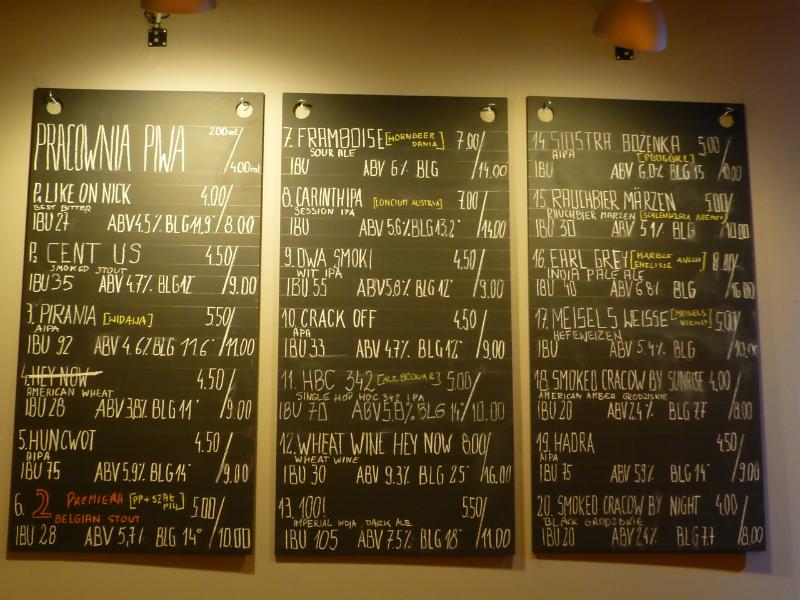 PRACOWNIA PIWA 200ml / 400ml
P. LIKE ON NICK 4.00/
BEST BITTER
IBU 27 ABV 4.5% BLG 11,9° 8.00
P. CENT US 4,50/
SMOKED STOUT
IBU 35 ABV 4.7% BLG 12° 9.00
3. PIRANIA [WIDAWA] 5.50/
AIPA
IBU 92 ABV 4.6% BLG 11.6° 11.00
4. HEY NOW 4.50/
AMERICAN WHEAT
IBU 28 ABV 3,8% BLG 11° 9.00
5. HUNCWOT 4.50/
AIPA
IBU 75 ABV 5.9% BLG 14° 9.00
6. 2 PREMIERA [PP+SZAŁ PIW] 5.00/
BELGIAN STOUT
IBU 28 ABV 5,7% BLG 14° 10.00
7. FRAMBOISE [HORNBEER DANIA] 7.00/
SOUR ALE
IBU ABV 6% BLG 14.00
8. CARINTHIPA [LONCIUM AUSTRIA] 7.00
SESSION IPA
IBU ABV 5.6% BLG 13.2° 14.00
9. DWA SMOKI 4.50/
WIT IPA
IBU 55 ABV 5,8% BLG 12° 9.00
10. CRACK OFF 4.50
APA
IBU 33 ABV 4.7% BLG 12° 9,00
11. HBC 342 [ALEBROWAR] 5.00/
SINGLE HOP HBC 342 IPA
IBU 70 ABV 5.8% BLG 14° 10.00
12. WHEAT WINE HEY NOW 8.00/
WHEAT WINE
IBU 30 ABV 9.3% BLG 25° 16.00
13. 100! 5.50/
IMPERIAL INDIA DARK ALE
IBU 105 ABV 7.5% BLG 18° 11.00
14. SIOSTRA BOŻENKA 5.00/
AIPA [PODGÓRZ]
IBU ABV 6,0% BLG 15 10.00
15. RAUCHBIER MÄRZEN 5.00/
RAUCHBIER MARZEN [SCHLENKERLA NIEMCY]
IBU 30 ABV 5.1% BLG 10.00
16. EARL GREY [MARBLE ANGLIA EMELISSE] 8.00/
INDIA PALE ALE
IBU 40 ABV 6.8% BLG 16.00
17. MEISELS WEISSE [MEISELS NIEMCY] 5.00/
HEFEWEIZEN
IBU ABV 5.4% BLG 10.00
18. SMOKED CRACOW BY SUNRISE 4.00/
AMERICAN AMBER GRODZISKIE
IBU 20 ABV 2.4% BLG 7.7 8.00
19. HADRA 4.50/
AIPA
IBU 75 ABV 5.9% BLG 14° 9.00
20. SMOKED CRACOW BY NIGHT 4.00/
BLACK GRODZISKIE
IBU 20 ABV 2.4% BLG 7.7 8.00